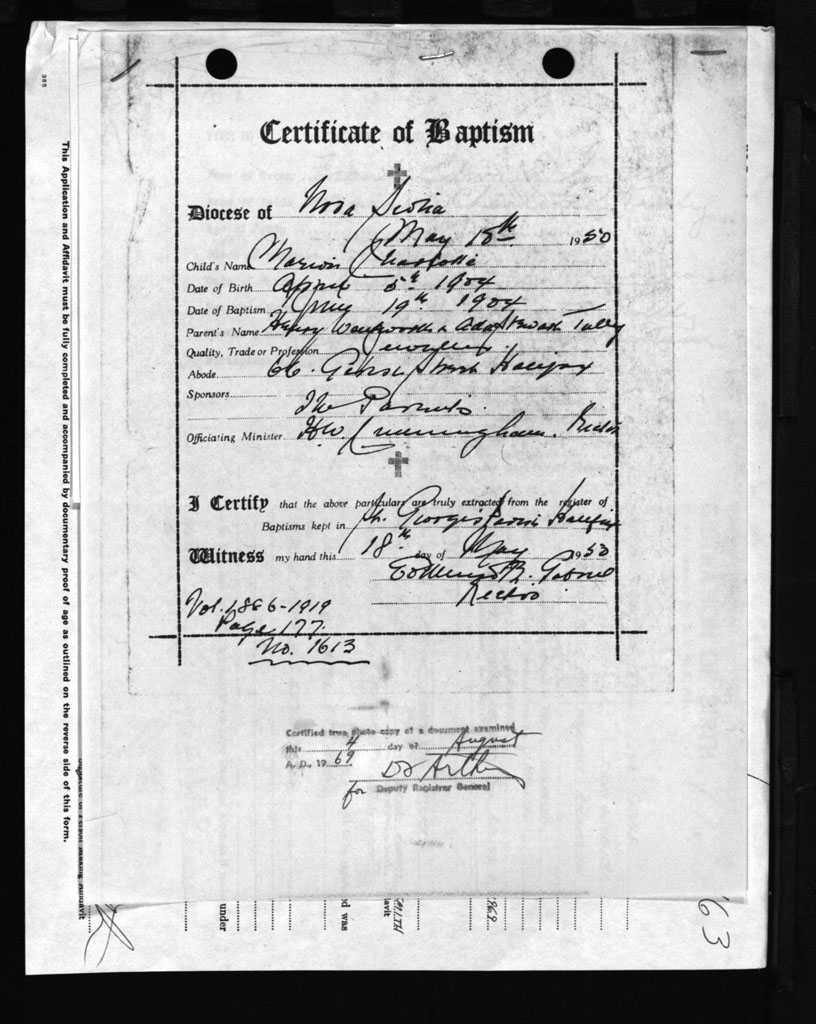 Certificate of Baptism
Diocese of Nova Scotia
May 18th 1950
Child's Name Marion Charlotte
Date of Birth April 5th 1904
Date of Baptism June 19th 1904
Parent's Name Henry Wentworth & Ada Tulley
Quality, Trade or Profession Jeweller
Abode 66. Street Halifax
Sponsors The Parents.
Officiating Minister H.W. Cunningham. Rector
I Certify that the above particulars are truly extracted from the register of
Baptisms kept in St. George's Parish Halifax
Witness my hand this 18th day of May 1950
Rector
Vol. 1886-1919
Page 177.
No. 1613
Certified true photo copy of a document examined
this 4 day of August
A.D., 19 69
for Deputy Registrar General
This Application and Affidavit must be fully completed and accompanied by documentary proof of age as outlined on the reverse side of this form.
385
under
d was
avit
'63